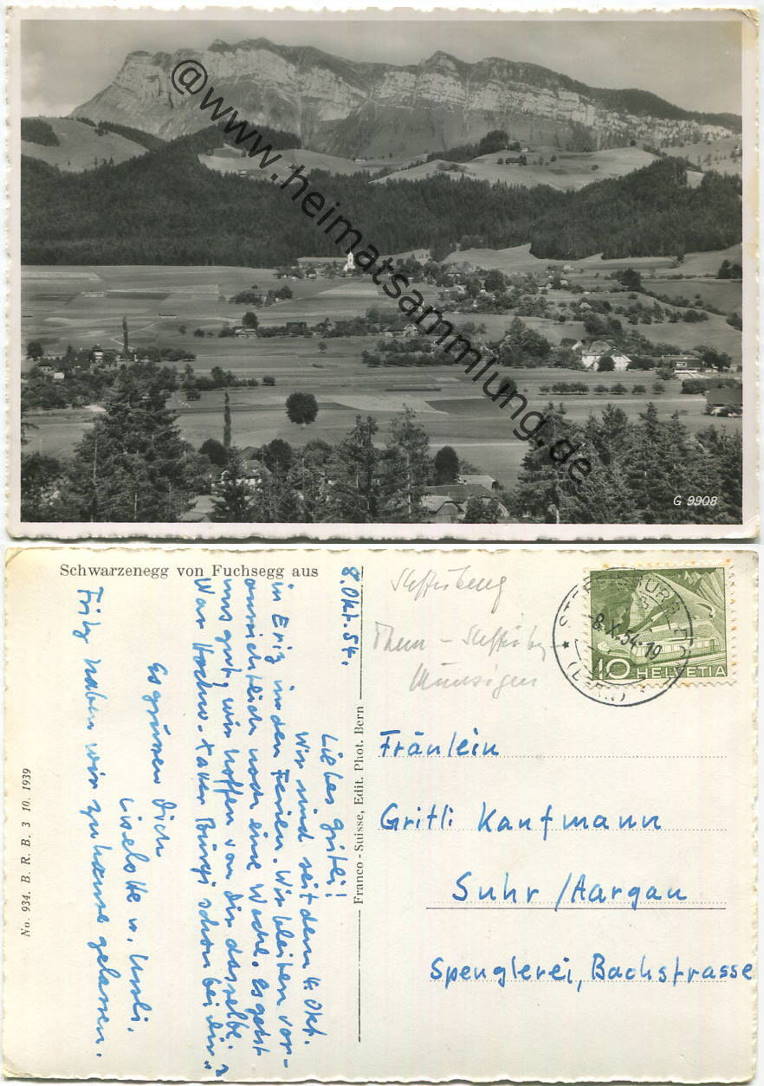 @www.heimatsammlung.de
G 9908
Schwarzenegg von Fuchsegg aus
8. Okt. 54.
Liebes Gritli!
Wir sind seit dem 4. Okt.
in Eriz in den Ferien. Wir bleiben vor-
aussichtlich noch eine Woche. Es geht
uns gut, wir hoffen von Dir dasselbe.
War Hochw. Xaver Bürgi schon bei Dir?
Es grüssen Dich
Liselotte u. Ursli.
Fritz haben wir zu hause gelassen.
No. 934. B. R. B. 3 10. 1939
Franco-Suisse, Edit. Phot. Bern
Thun - 
8.X.54.19
10 HELVETIA
Fräulein
Gritli Kaufmann
Suhr / Aargau
Spenglerei, Bachstrasse